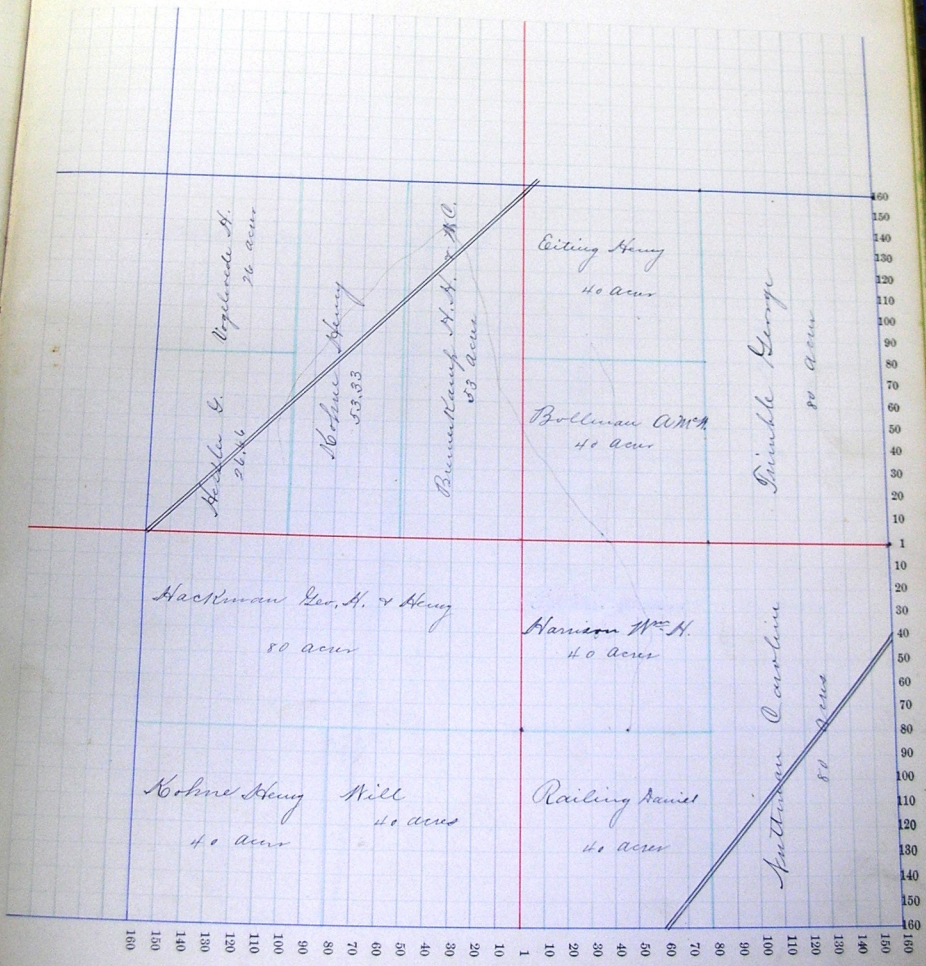 Vogelwede H.
26 acres
Kohne Henry
53.33
BrunerKamp H. H. & W.C.
53 acres
G.
26.66
Eiting Henry
40 acres
Bollman A McN.
40 acres
Trimble George
80 acres
Hackman Geo. H. & Henry
80 acres
Harrison Wm H.
40 acres
Nuttman Caroline
80 acres
Kohne Henry
40 acres
Will
40 acres
Railing Daniel
40 acres
160
150
140
130
120
110
100
90
80
70
60
50
40
30
20
10
1
10
20
30
40
50
60
70
80
90
100
110
120
130
140
150
160
160 150 140 130 120 110 100 90 80 70 60 50 40 30 20 10 1 10 20 30 40 50 60 70 80 90 100 110 120 130 140 150 160